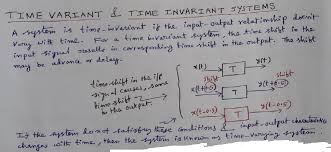 TIME VARIANT & TIME INVARIANT SYSTEMS
A system is time-invariant if the input-output relationship doesn't
vary with time. For a time invariant system, the time shift in the
input signal results in corresponding time shift in the output. The shift
may be advance or delay.
x(t) T y(t)
shift shift
time-shift in the i/p
signal causes same
time shift
in the output.
T
x(t-0.5) T y(t-0.5)
If the system do not satisfies these conditions input-output characteristics
changes with time, then the system is known as time-varying system.